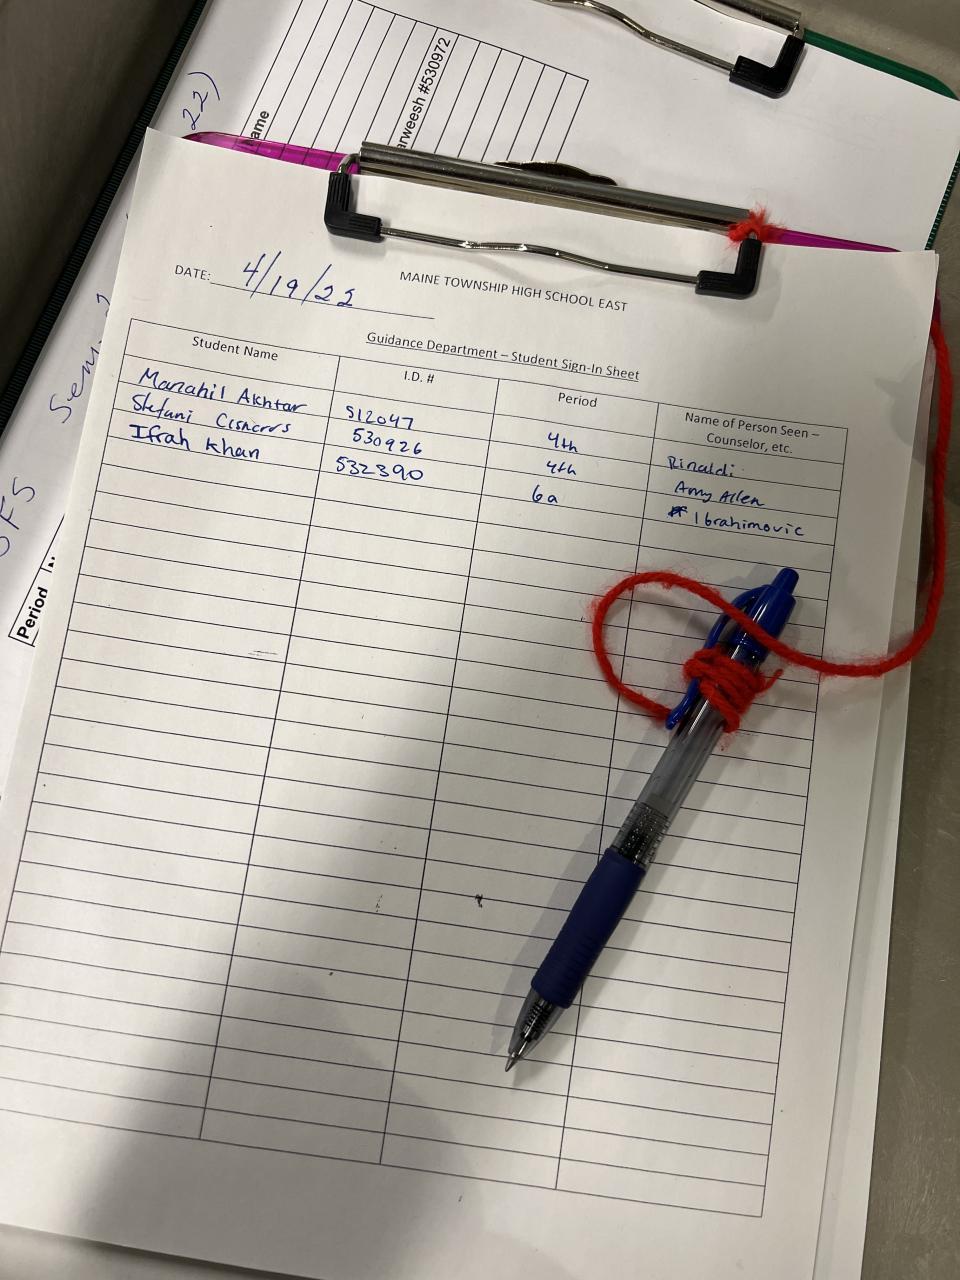 22)
ame
arweesh #530972
Sem.
SFS
Period
DATE: 4/19/22
MAINE TOWNSHIP HIGH SCHOOL EAST
Guidance Department – Student Sign-In Sheet
Student Name I.D. # Period Name of Person Seen –
Counselor, etc.
Manahil Akhtar 512047 4th Rinaldi
Stefani Cisneros 530926 4th Amy Allen
Ifrah Khan 532390 6a Ibrahimovic